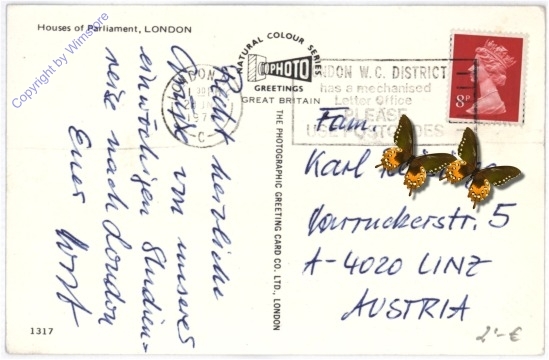 Houses of Parliament, LONDON
Copyright by Wimstore
Recht herzliche
Grüsse von unserer
einwöchigen Studien=
reise nach London
Euer
NATURAL COLOUR SERIES
PHOTO
GREETINGS
GREAT BRITAIN
THE PHOTOGRAPHIC GREETING CARD CO., LONDON
LONDON W.C. DISTRICT
has a mechanised
Letter Office
PLEASE
USE POSTCODES
8P
Fam.
Karl
5
A-4020 LINZ
AUSTRIA
1317
2'-€